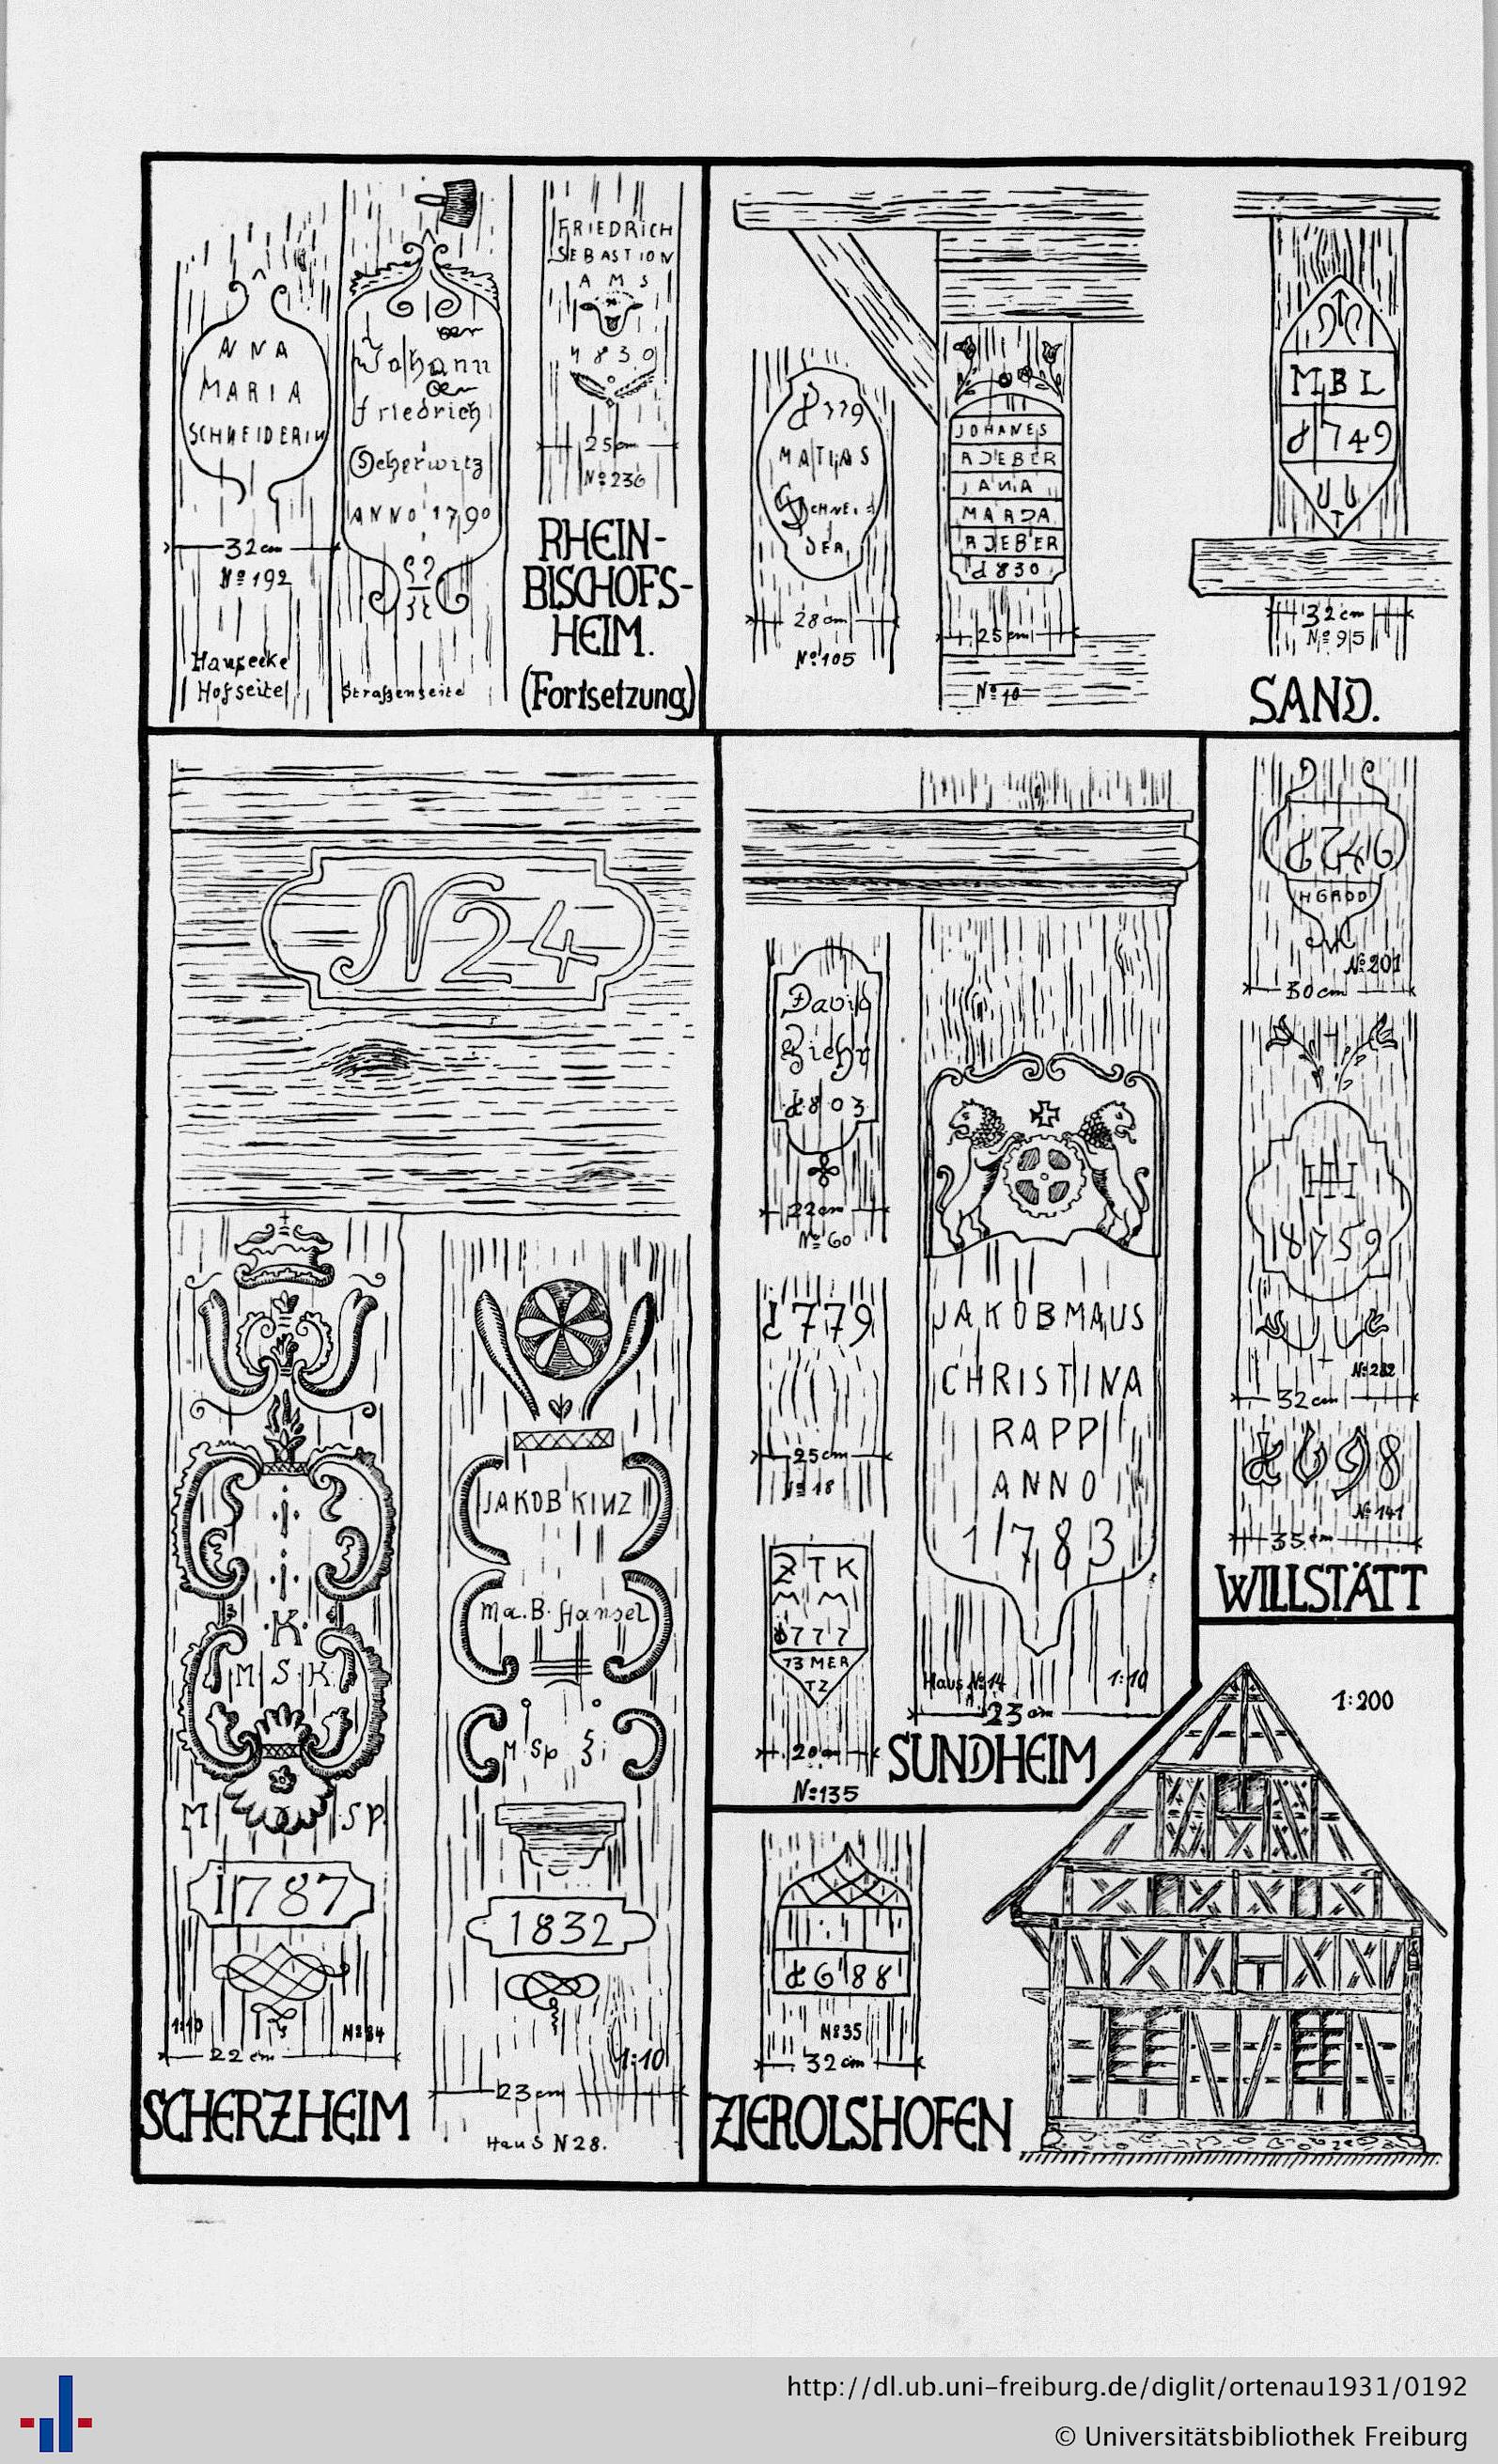 ANNA
MARIA
SCHNEIDERIN
32 cm
No 192
Hausecke
Hofseite
Johann
Friedrich
Scherwitz
ANNO 1790
Straßenseite
FRIEDRICH
SEBASTION
AMS
1830
25 cm
No 236
RHEIN-
BISCHOFS-
HEIM.
(Fortsetzung)
1779
MATIAS
SCHNEI
DER
28 cm
No 105
JOHANES
RJEBER
JANA
MARJA
RJEBER
1830
25 cm
No 10
MBL
1749
32 cm
No 95
SAND.
N24
I
I
K
M S K
M SP.
1787
1:10
No 84
22 cm
SCHERZHEIM
JAKOB KINZ
Ma. B. Hansel
M Sp
1832
1:10
23 cm
Haus N 28.
David
Ziehr
1803
22 cm
No 60
1779
25 cm
No 18
ZTK
M M
1777
73 MER
TZ
20 cm
No 135
JAKOB MAUS
CHRISTINA
RAPP
ANNO
1783
Haus No 14
1:10
23 cm
SUNDHEIM
1746
HGROD
No 201
30 cm
HI
1759
No 282
32 cm
1698
No 141
35 cm
WILLSTÄTT
1688
No 35
32 cm
ZIEROLSHOFEN
1:200
http://dl.ub.uni-freiburg.de/diglit/ortenau1931/0192
© Universitätsbibliothek Freiburg